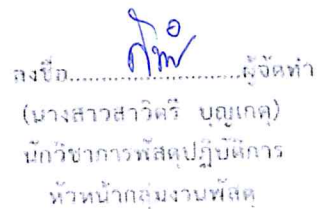 ลงชื่อ.....................ผู้จัดทำ
(นางสาวสาวิตรี บุญเกตุ)
นักวิชาการพัสดุปฏิบัติการ
หัวหน้ากลุ่มงานพัสดุ